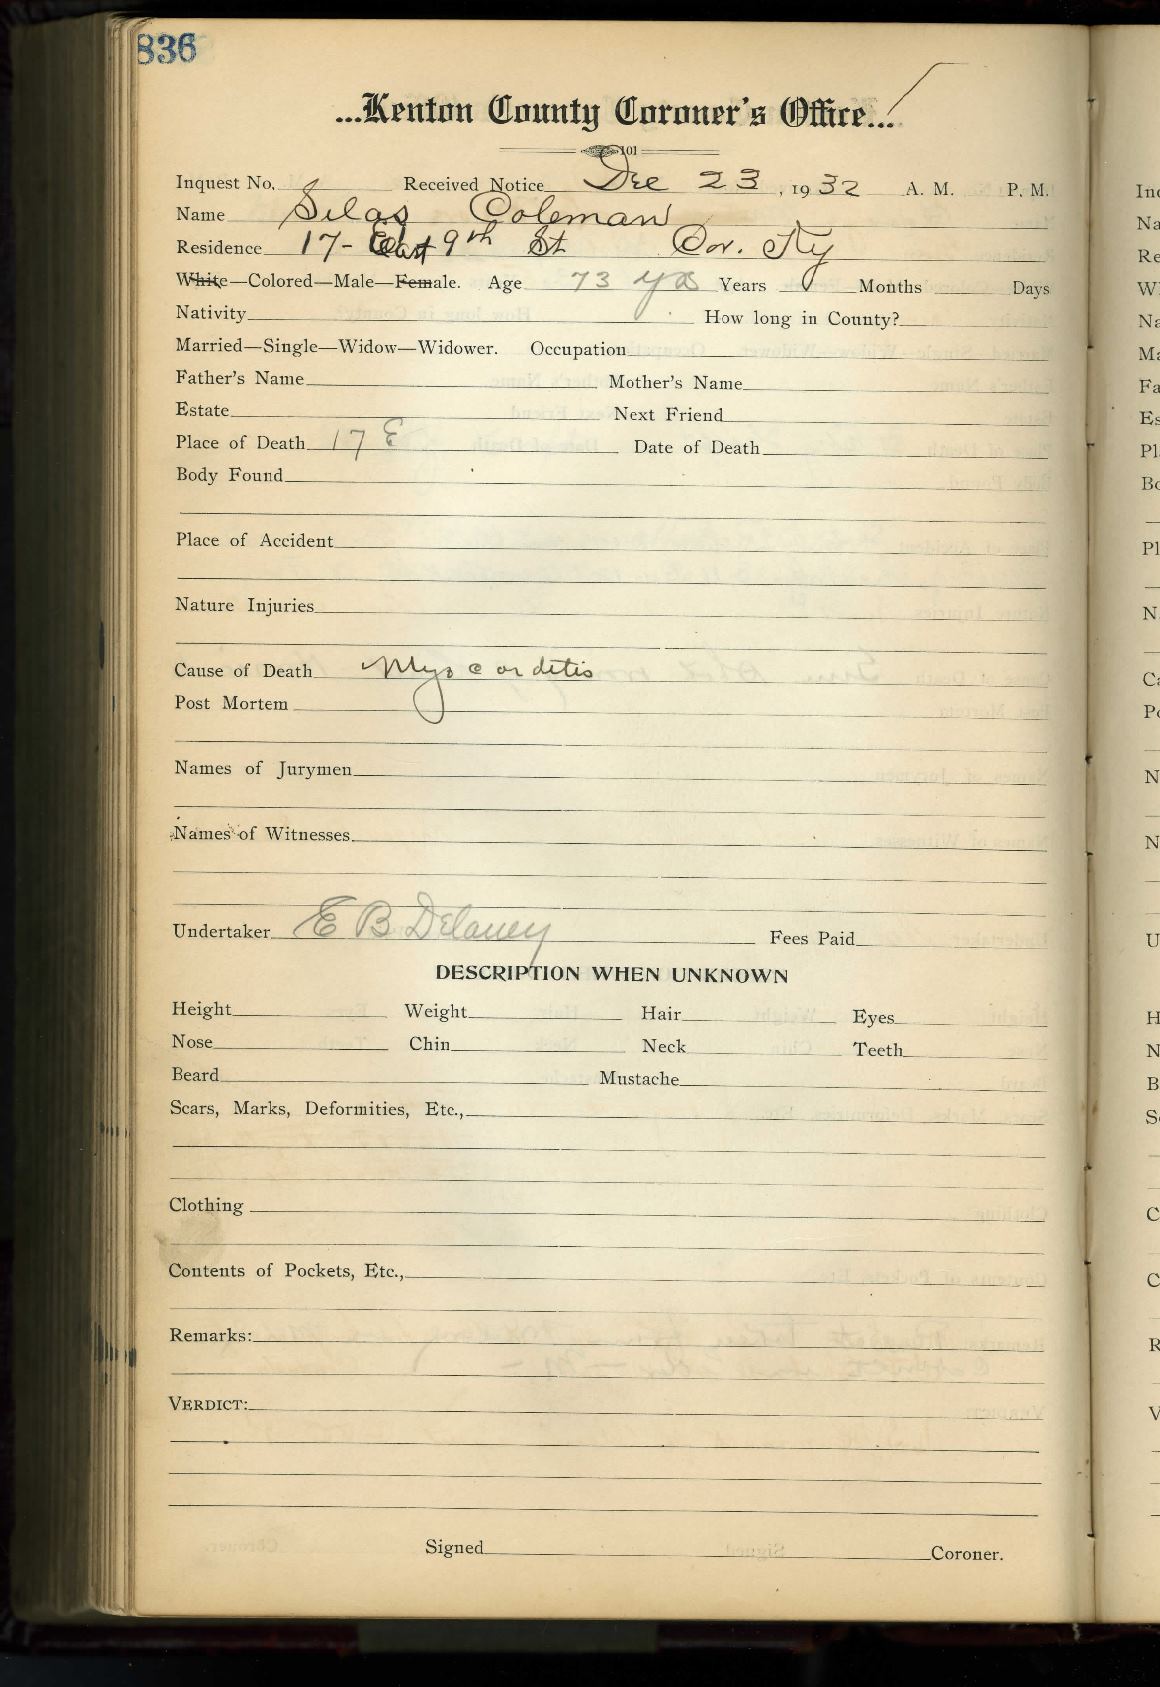 836
...Kenton County Coroner's Office...
101
Inquest No. Received Notice Dec 23, 1932 A. M. P. M.
Name Silas Coleman
Residence 17- East 9th St Cov. Ky
White—Colored—Male—Female. Age 73 yrs Years Months Days
Nativity How long in County?
Married—Single—Widow—Widower. Occupation
Father's Name Mother's Name
Estate Next Friend
Place of Death 17 E Date of Death
Body Found
Place of Accident
Nature Injuries
Cause of Death Myocorditis
Post Mortem
Names of Jurymen
Names of Witnesses
Undertaker E B Delaney Fees Paid
DESCRIPTION WHEN UNKNOWN
Height Weight Hair Eyes
Nose Chin Neck Teeth
Beard Mustache
Scars, Marks, Deformities, Etc.,
Clothing
Contents of Pockets, Etc.,
Remarks:
VERDICT:
Signed Coroner.